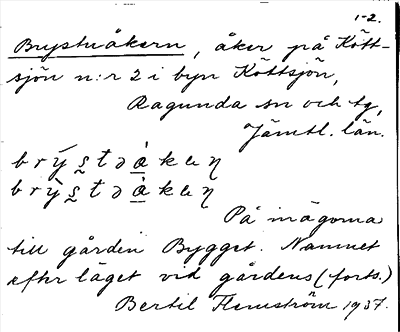 1-2.
Brystuåkern, åker på Kött-
sjön n:r 2 i byn Köttsjön,
Ragunda sn och tg,
Jämtl. län.
På inägorna
till gården Bygget. Namnet
efter läget vid gårdens (forts.)
Bertil Flemström 1937.